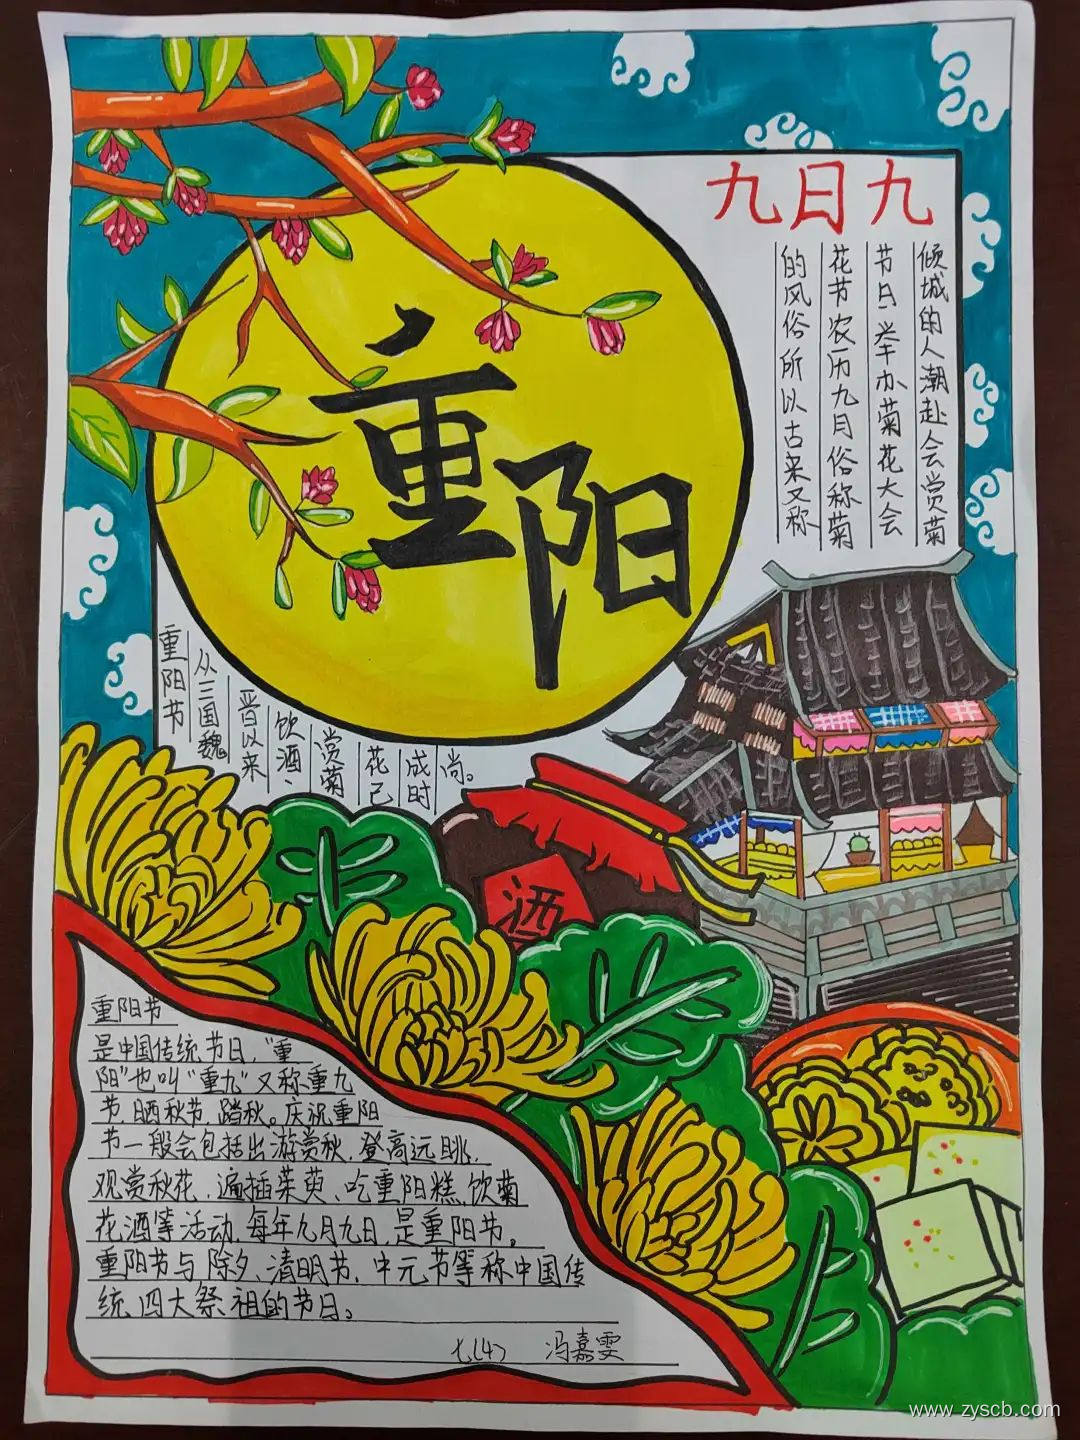 九日九
倾城的人潮赴会赏菊
节日举办菊花大会
花节农历九月俗称菊
的风俗所以古来又称
重阳
重阳节
从三国魏
晋以来
饮酒、
赏菊
花己
成时
尚。
酒
重阳节
是中国传统节日，“重
阳”也叫“重九”又称重九
节晒秋节踏秋。庆祝重阳
节一般会包括出游赏秋、登高远眺、
观赏秋花、遍插茱萸、吃重阳糕、饮菊
花酒等活动，每年九月九日，是重阳节。
重阳节与除夕、清明节、中元节等称中国传
统四大祭祖的节日。
七(4) 冯嘉雯
www.zyscb.com